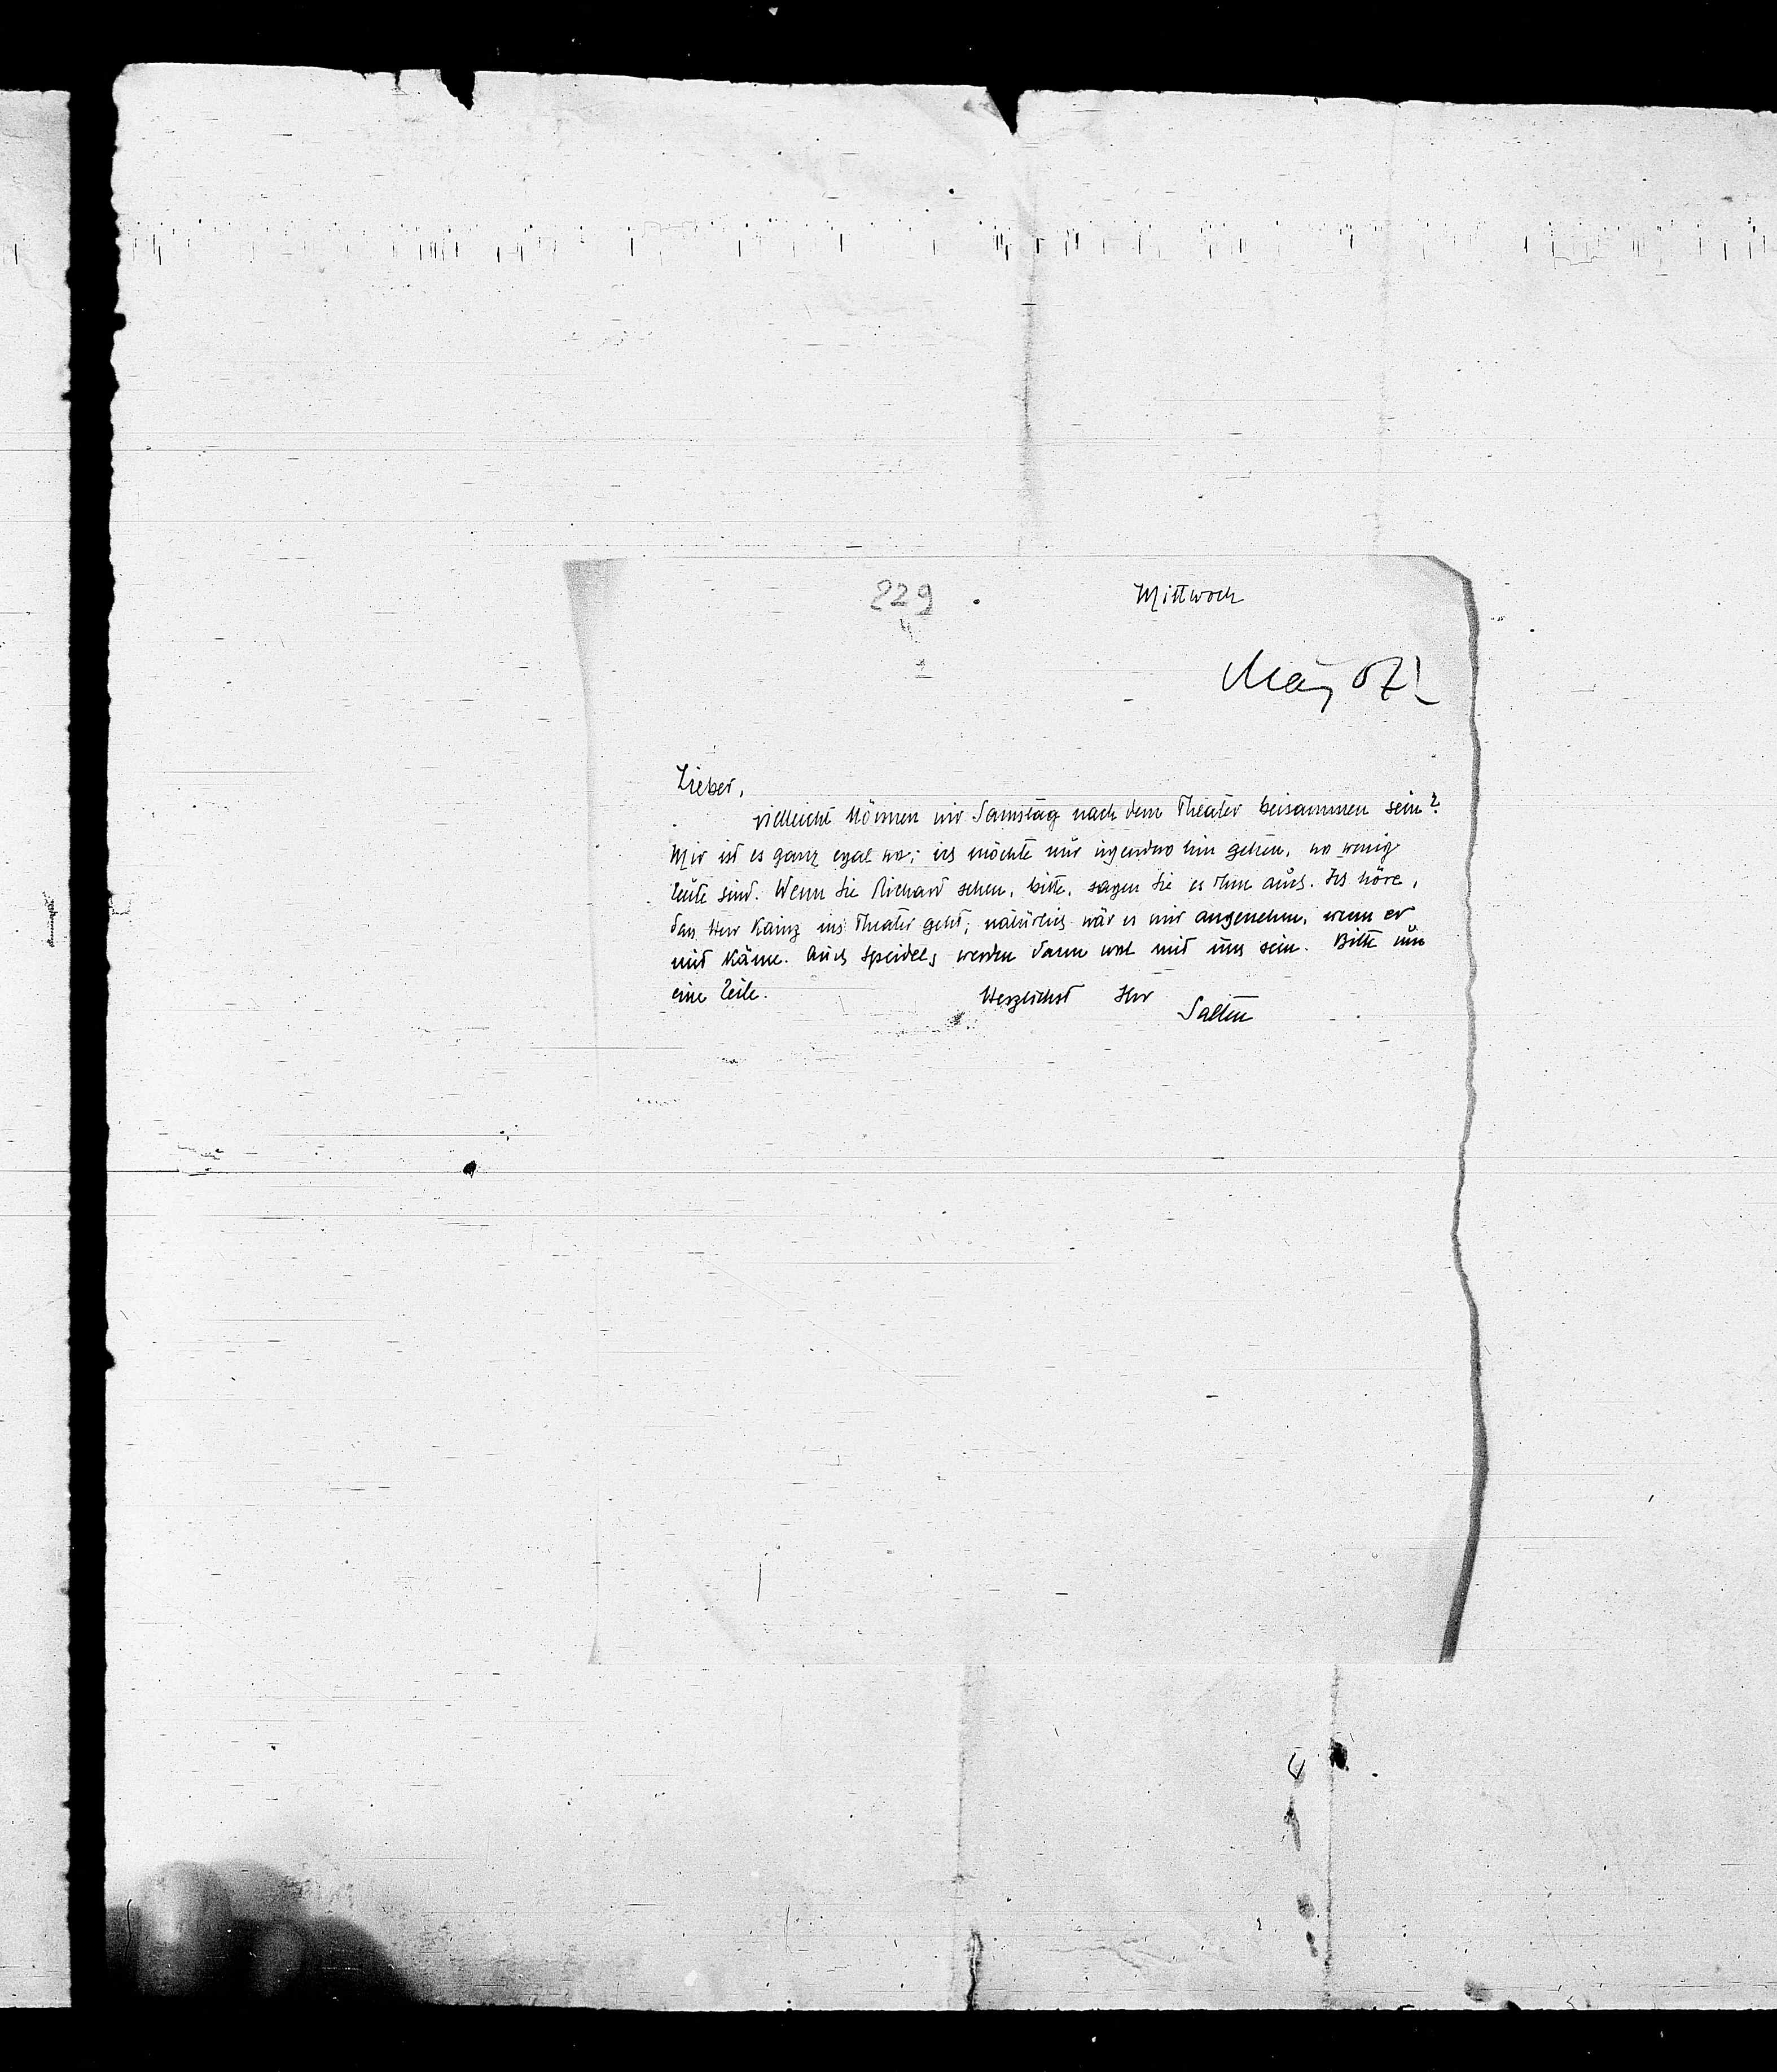 229
Mittwoch
März 07
Lieber,
vielleicht können wir Samstag nach dem Theater beisammen sein?
Mir ist es ganz egal wo; ich möchte nur irgendwo hin gehen, wo wenig
Leute sind. Wenn Sie Richard sehen, bitte, sagen Sie es ihm auch. Ich höre,
dass Herr Kainz ins Theater geht; natürlich wär es mir angenehm, wenn er
mit käme. Auch Speidels werden dann wol mit uns sein. Bitte um
eine Zeile.
Herzlichst Ihr
Salten